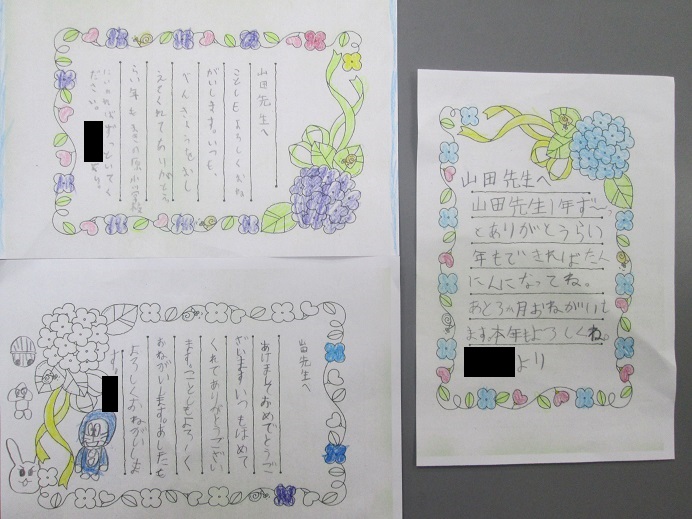 山田先生へ
ことしもよろしくおね
がいします。いつも、
べんきょうをおし
えてくれてありがとう。
らい年も
ださい。
より。
山田先生へ
あけましておめでとうご
ざいます いつもはげめて
くれてありがとうござい
ます。ことしもよろしく
おねがいします。あしたも
よろしくおねがいしま
より
山田先生へ
山田先生1年ず〜っ
とありがとうらい
年もできればたん
にんになってね。
あと3ヵ月おねがいし
ます本年もよろしくね。
より